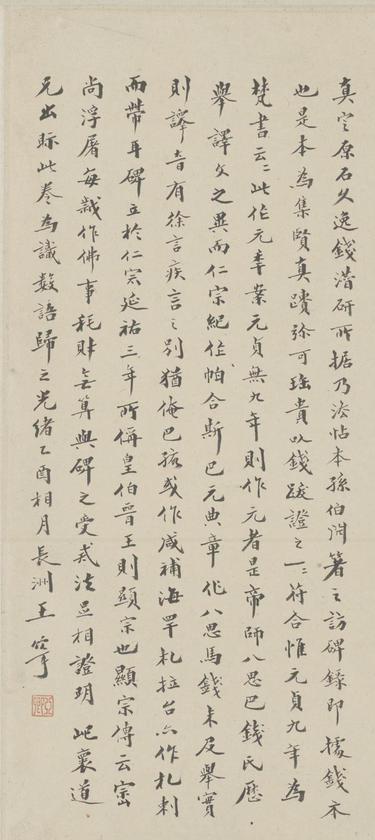 真定原石久逸錢潛研所据乃法帖本孫伯淵著之訪碑錄即據錢木
也是本為集賢真蹟弥可珤貴以錢跋證之一二符合惟元貞九年為
梵書云云此作元李業元貞無九年則作元者是帝師八思巴錢氏歷
舉譯文之異而仁宗紀作帕合斯巴元典章作八思馬錢未及舉實
則譯音有徐言疾言之別猶俺巴孩或作咸補海罕札拉台亦作札剌
而帶耳碑立於仁宗延祐三年所偁皇伯晉王則顯宗也顯宗傳云崇
尚浮屠每歲作佛事耗財無算與碑之受戒法足相證明 屺襄道
兄出眎此卷為識數語歸之光緒乙酉相月長洲王